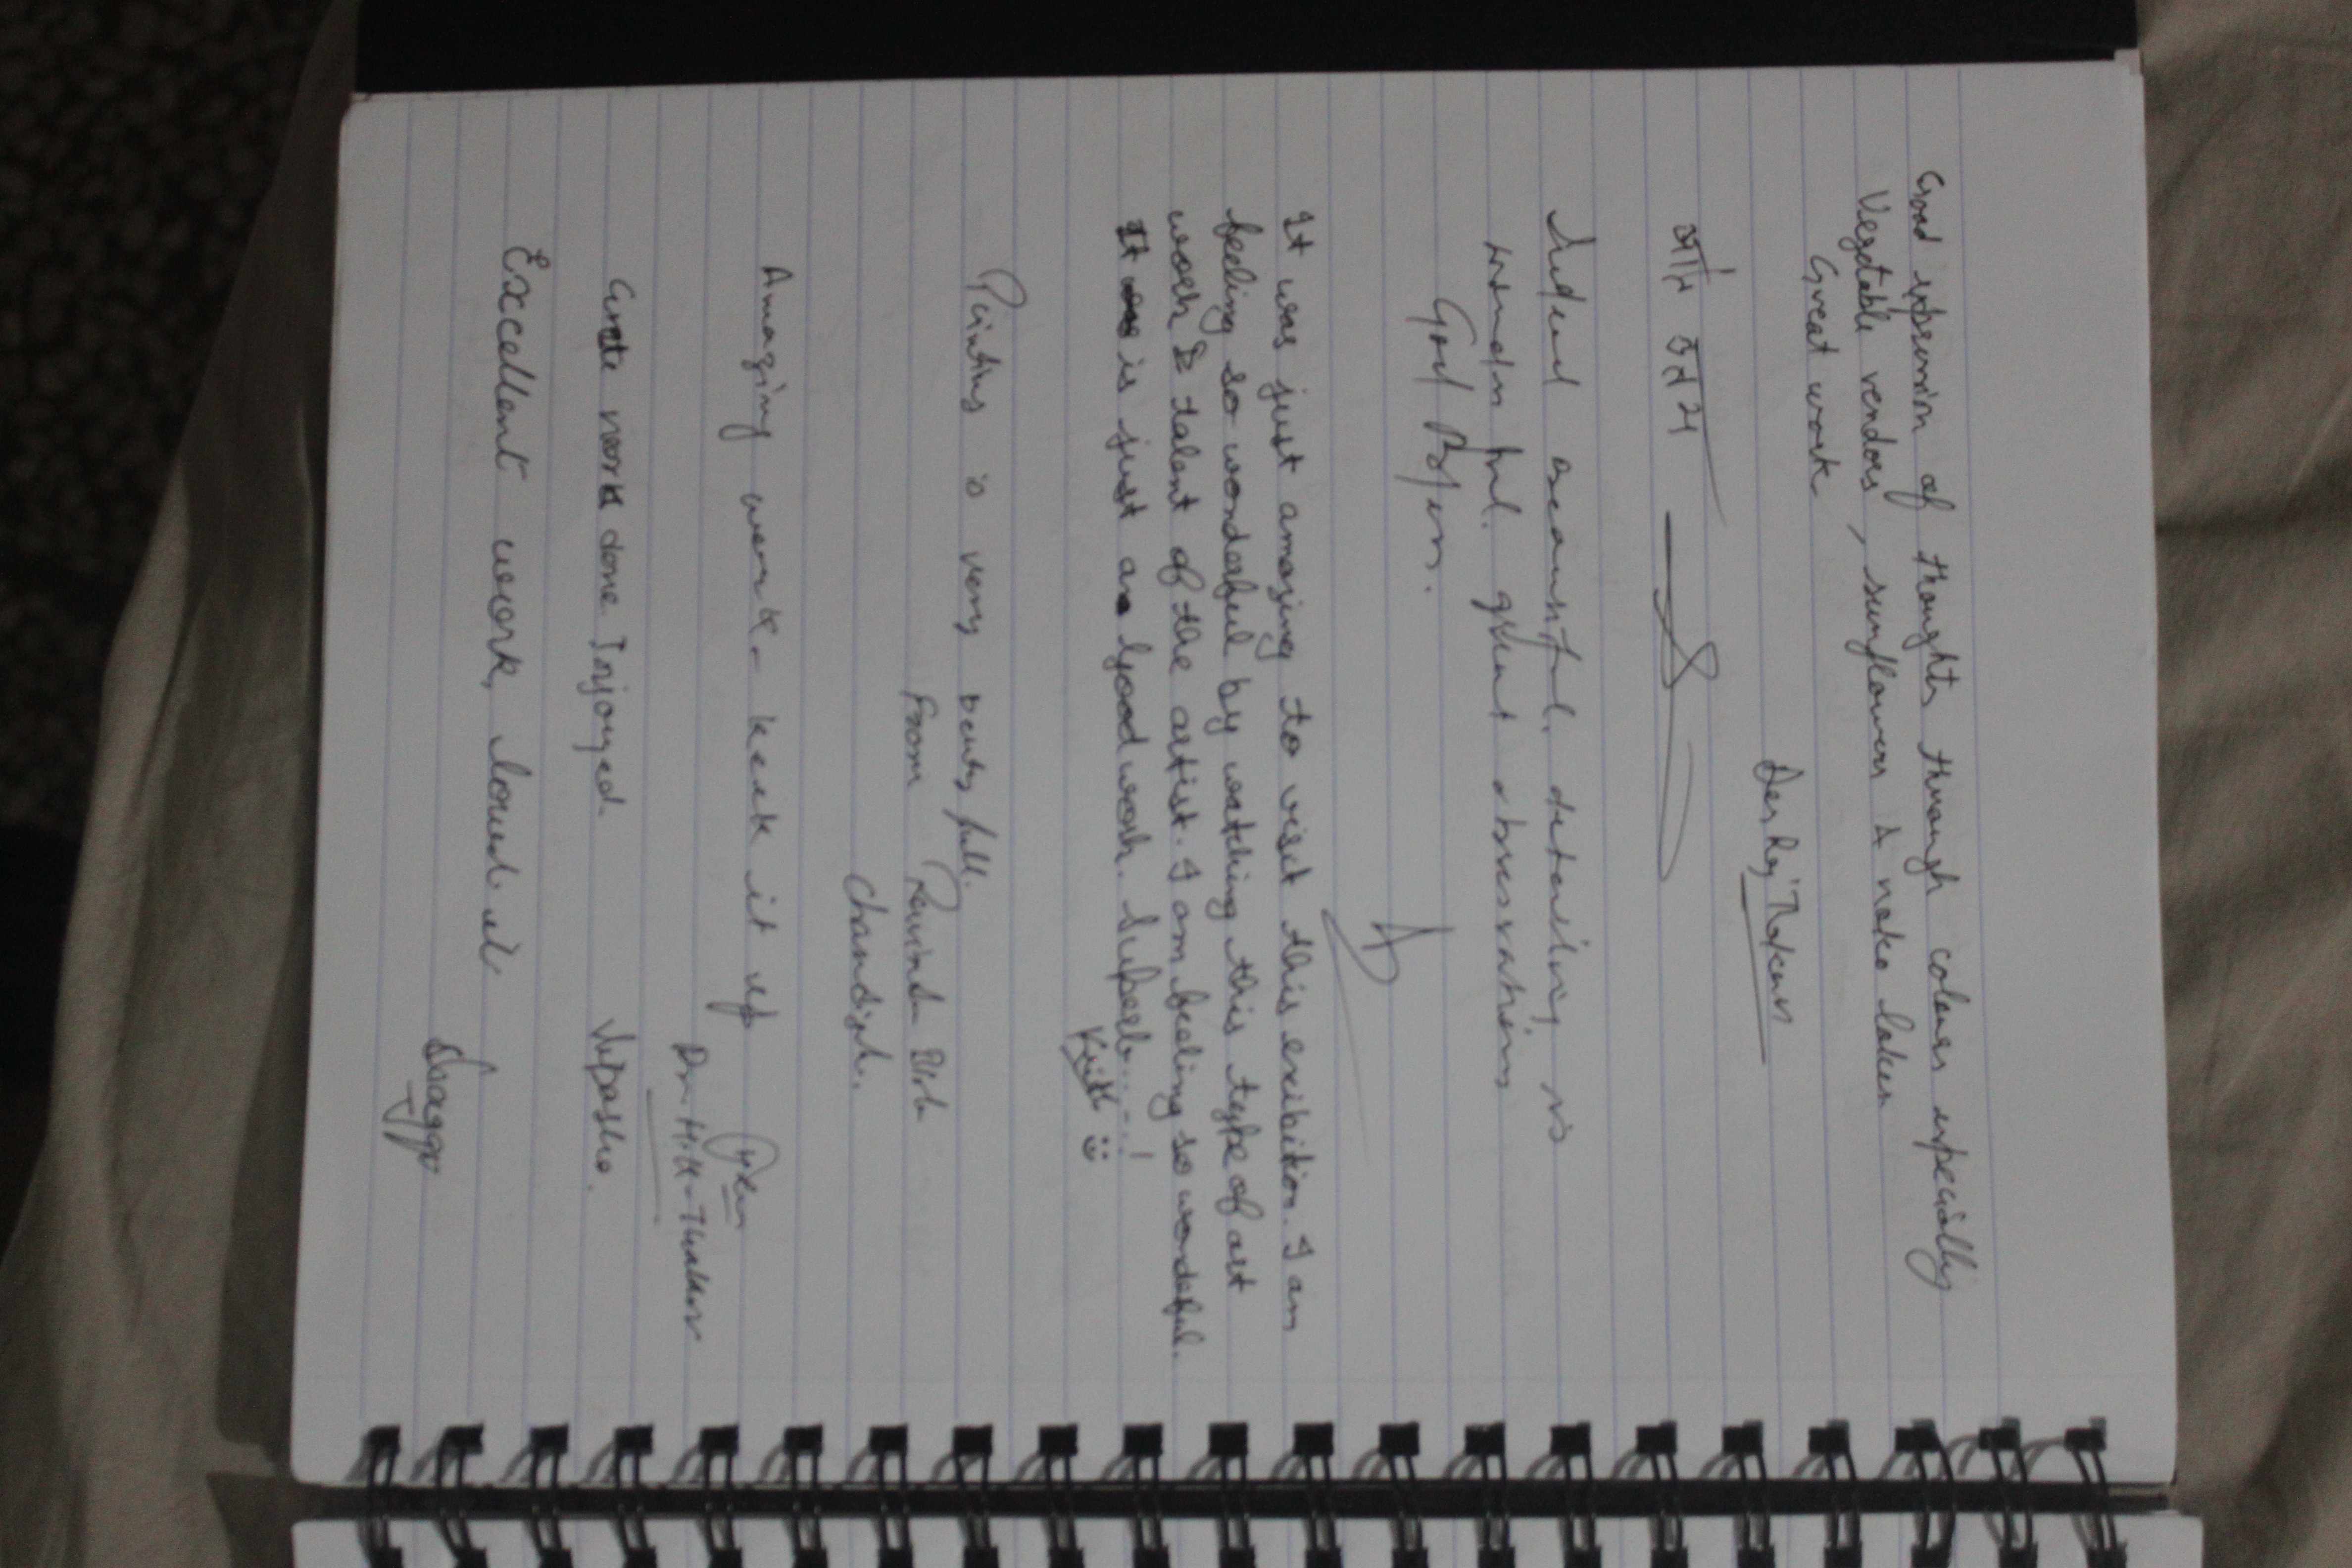 Good expression of thoughts through colours especially
Vegetable vendors, sunflowers &
Great work
Des Raj Thakur
अति उत्तम
Indeed beautiful, detailing is
wonderful. great observations
It was just amazing to visit this exibition. I am
feeling so wonderful by watching this type of art
work & talent of the artist. I am feeling so wondeful.
It is just a good work. Superb....!
Painting is very beauty full.
From Ravinder
Chandigarh.
Amazing work - keek it up
Dr. H.K. Thakur
Grete work done Injoyed.
Vipasha.
Excellent work, loved it